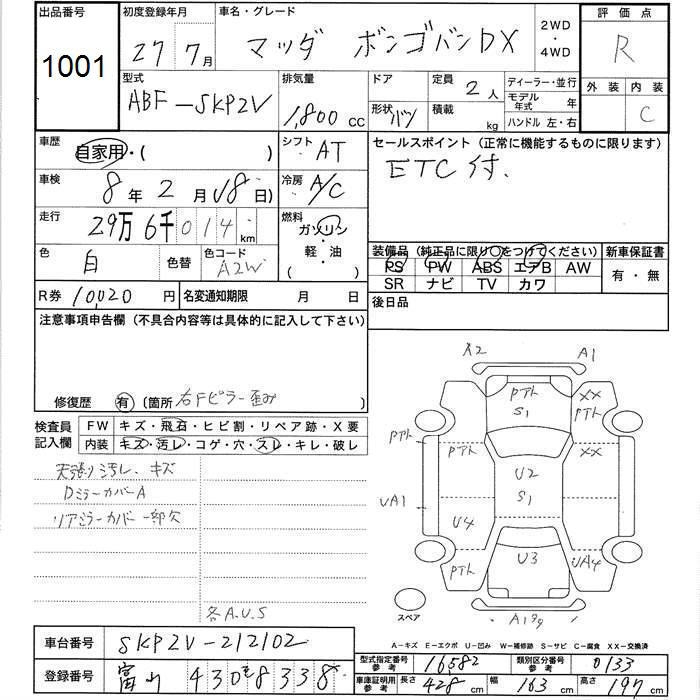 出品番号 初度登録年月 車名・グレード 2WD・4WD 評価点
1001 27 7月 マツダ ボンゴバンDX R
型式 排気量 ドア 定員 ディーラー・並行 外装 内装
ABF-SKP2V 1,800 cc 形状 バン 2人 積載 kg モデル年式 年 ハンドル 左・右 C
車歴 自家用・( ) シフト AT セールスポイント (正常に機能するものに限ります)
車検 8年2月18日) 冷房 A/C ETC付.
走行 29万6千014km 燃料 ガソリン・軽・油 ( )
色 白 色替 色コード A2W 装備品 (純正品に限り○をつけてください) 新車保証書
PS PW ABS エアB AW 有・無
SR ナビ TV カワ
R券 10,020円 名変通知期限 月 日 後日品
注意事項申告欄 (不具合内容等は具体的に記入して下さい)
修復歴 有 (箇所 右Fピラー歪み
検査員記入欄 FW キズ・飛石・ヒビ割・リペア跡・X要
内装 キズ・汚レ・コゲ・穴・スレ・キレ・破レ
天張り汚レ.キズ
DミラーカバーA
リアミラーカバー一部欠
各A.U.S
A2 A1
Pテカ S1 XX Pテカ
Pテカ Pテカ U2 XX
UA1 U4 S1
Pテカ U3 UA4
スペア
A199
A-キズ E-エクボ U-凹み W-補修跡 S-サビ C-腐食 XX-交換済
車台番号 SKP2V-212102
型式指定番号 参考 16582 類別区分番号 参考 0133
登録番号 富山 430 を 8338
車庫証明用 参考 長さ 428cm 幅 163cm 高さ 197cm